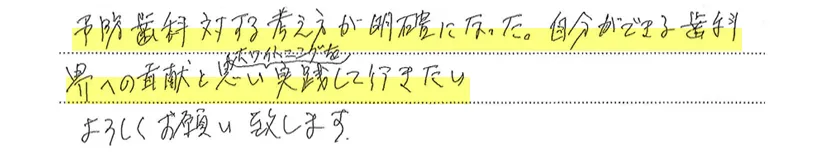 予防歯科対する考え方が明確になった。自分ができる歯科
界への貢献と思いホワイトニングを実践して行きたい
よろしくお願い致します